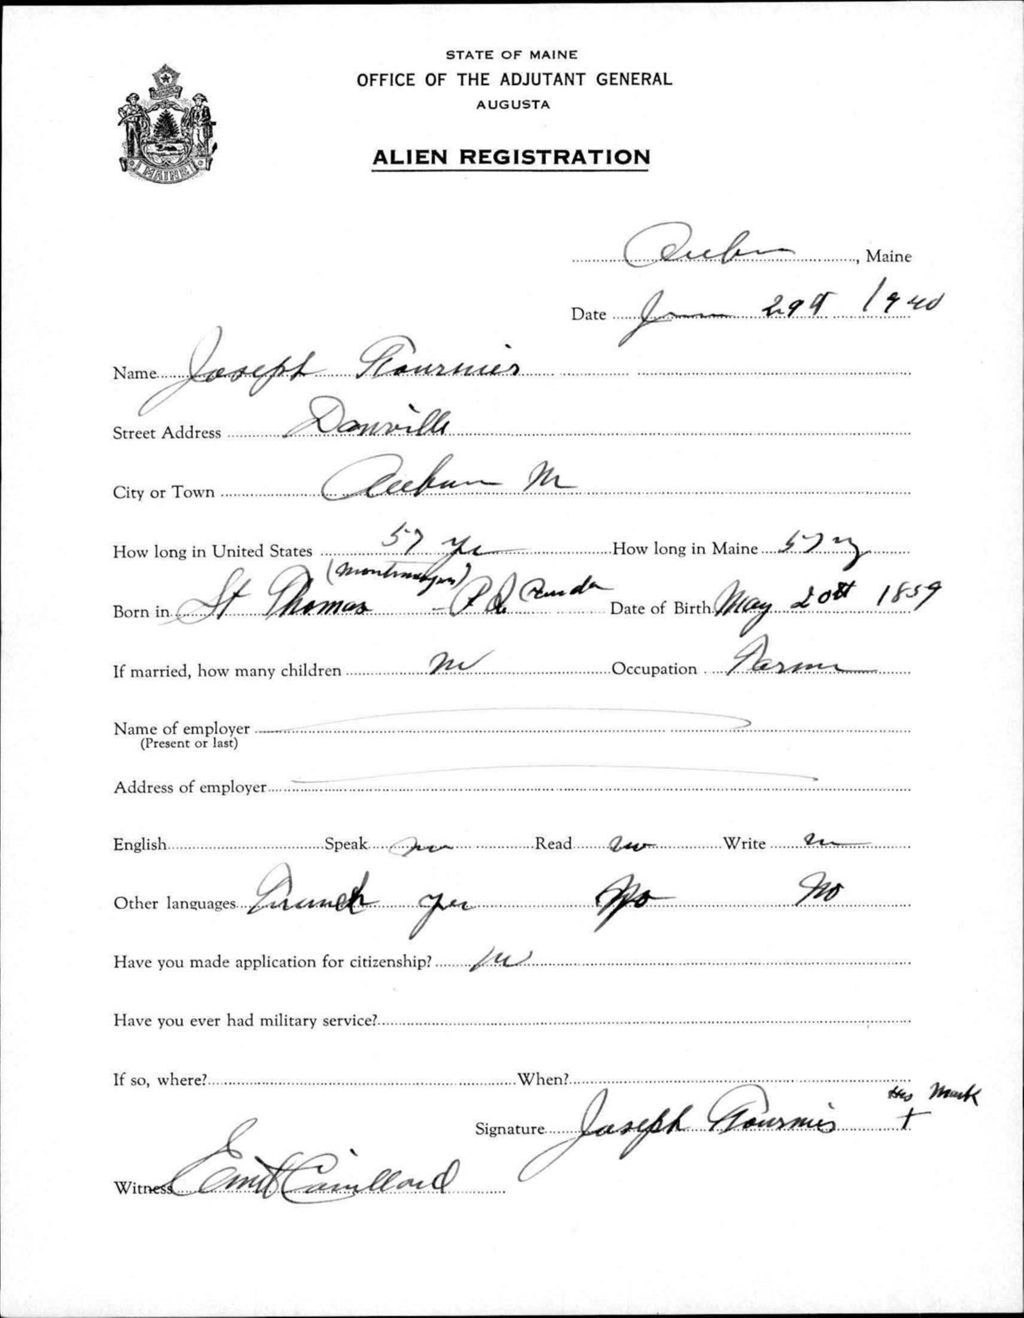 STATE OF MAINE
OFFICE OF THE ADJUTANT GENERAL
AUGUSTA
ALIEN REGISTRATION
MAINE
Auburn, Maine
Date June 29th 1940
Name Joseph Fournier
Street Address Danville
City or Town Auburn M
How long in United States 57 yr How long in Maine 57 y
(Montmagny)
Born in St Thomas - P.Q. Canada Date of Birth May 20th 1859
If married, how many children no Occupation Farmer
Name of employer
(Present or last)
Address of employer
English Speak no Read no Write no
Other languages French yes No No
Have you made application for citizenship? no
Have you ever had military service?
If so, where? When?
His Mark
Signature Joseph Fournier +
Witness Camillard